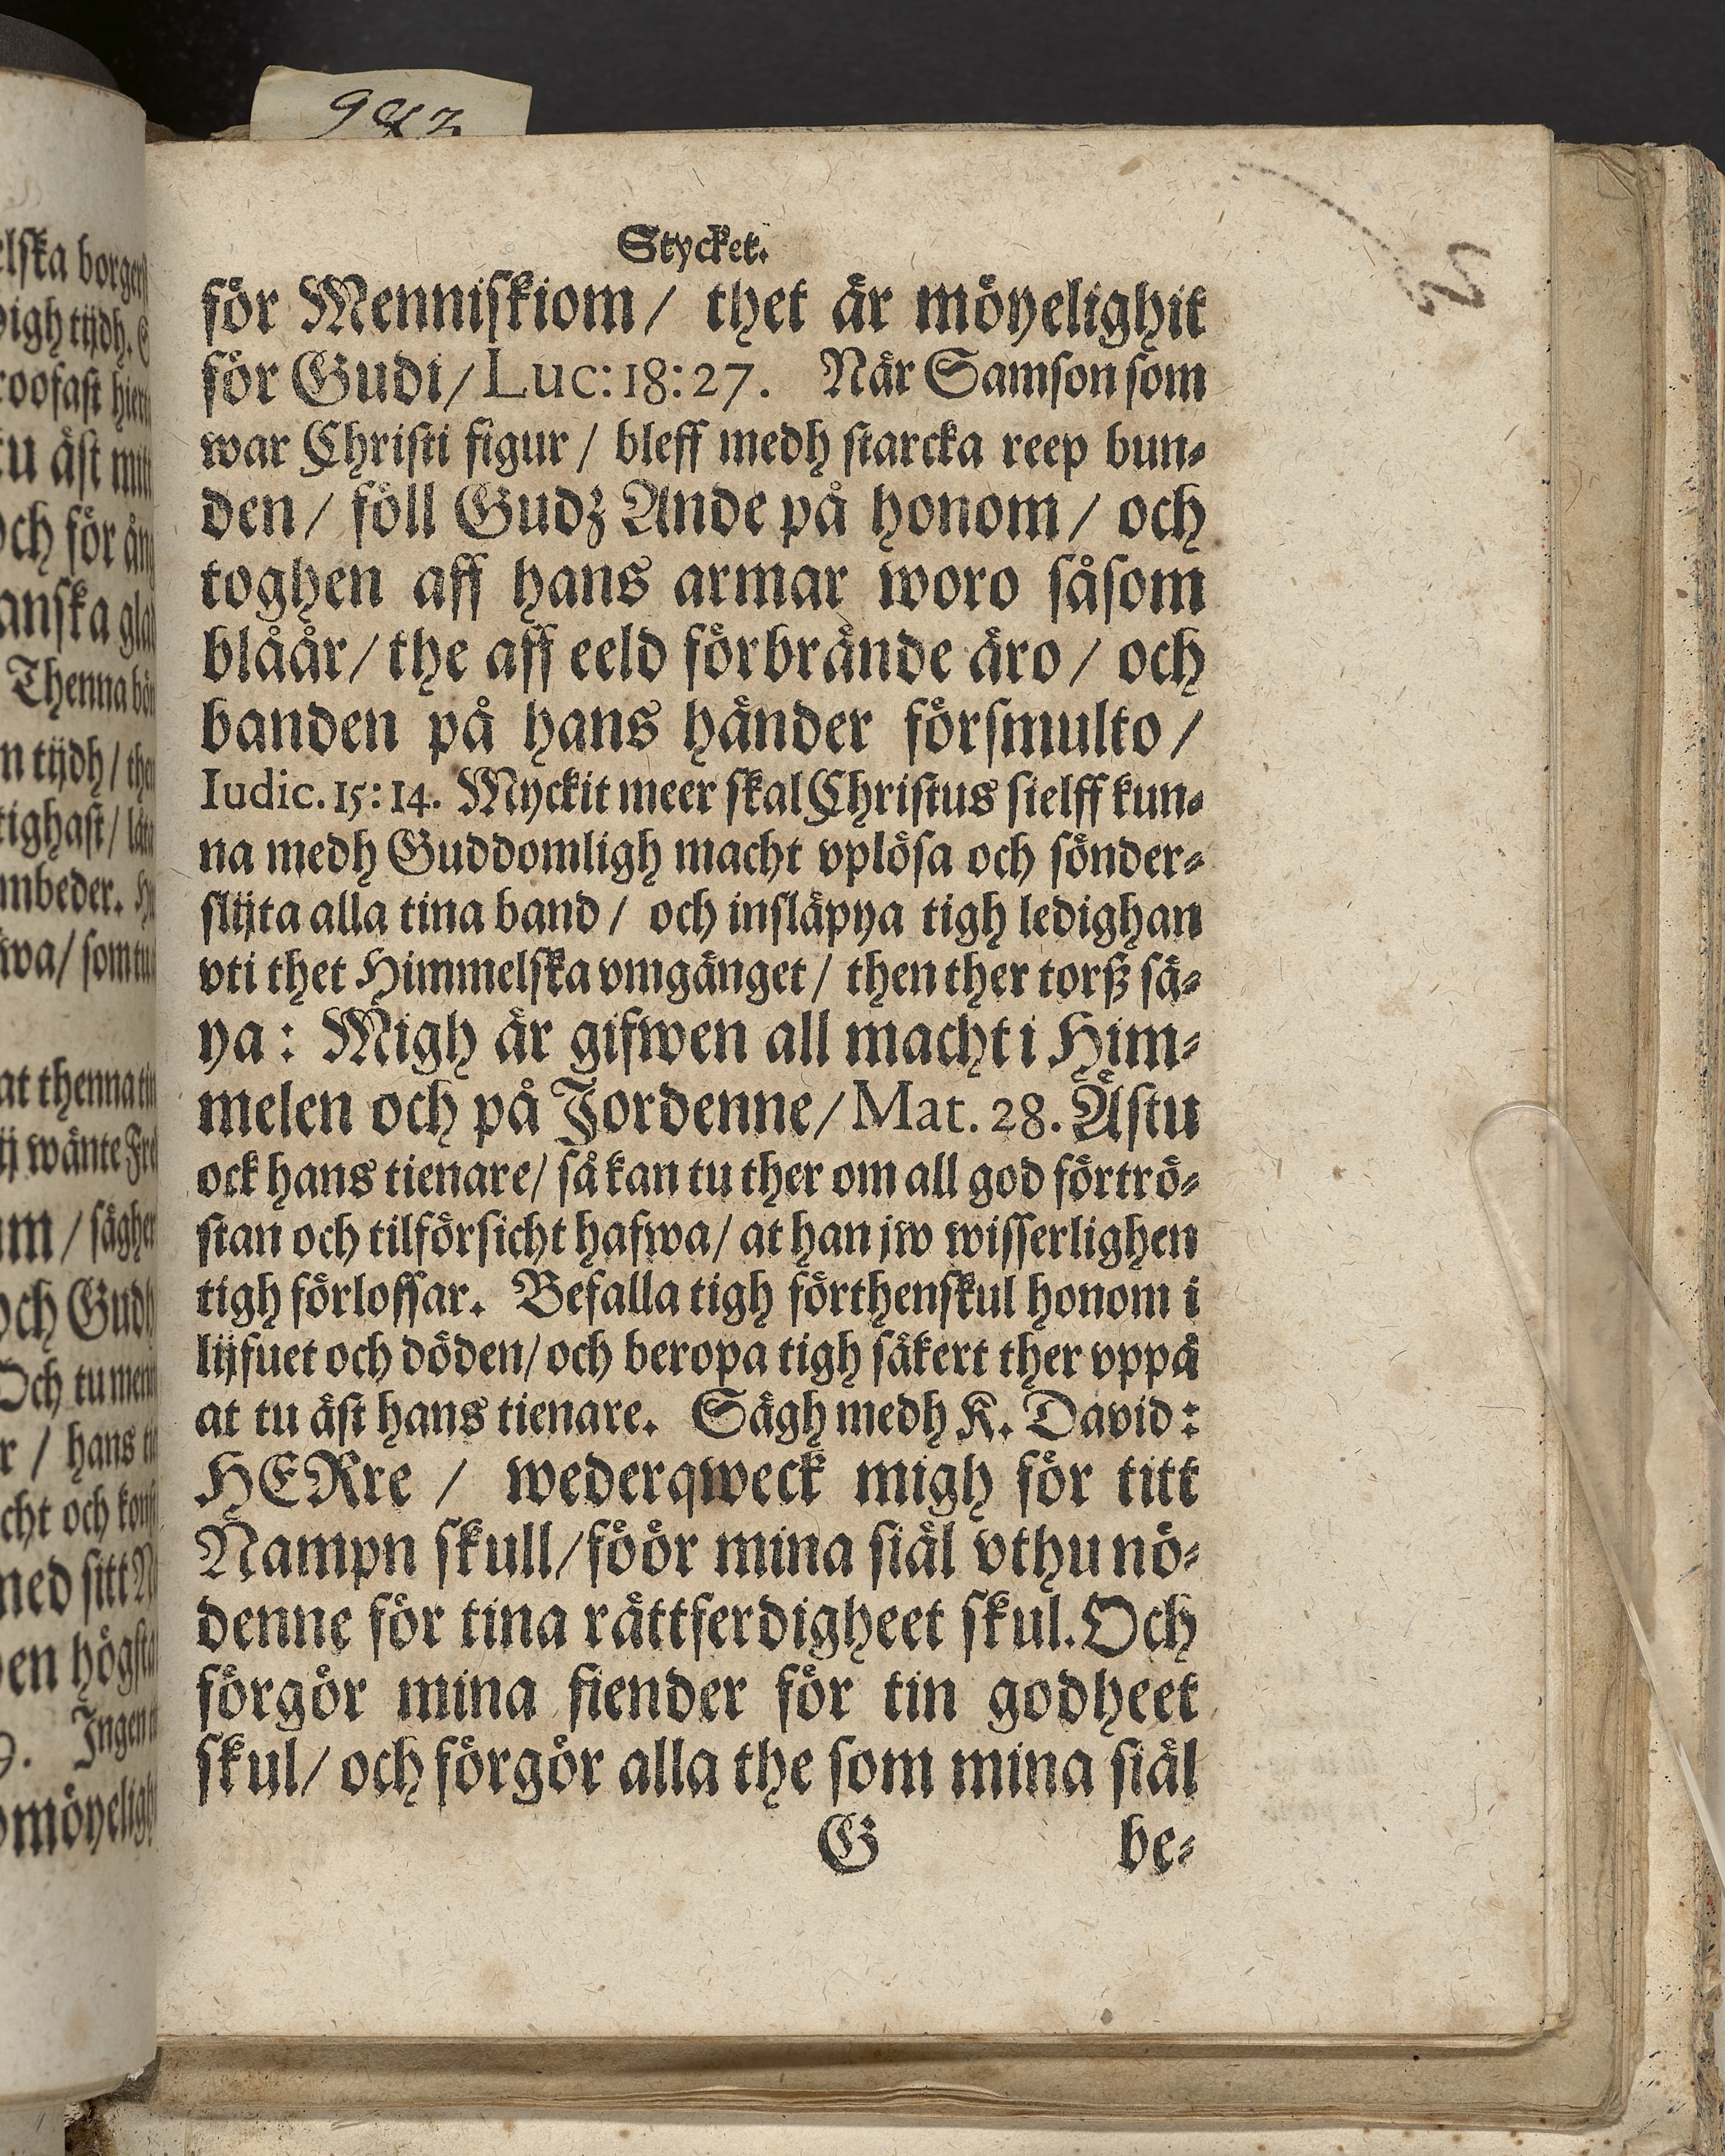 Stycket.
för Menniskiom / thet är möyelighit
för Gudi / Luc: 18: 27. När Samson som
war Christi figur / bleff medh starcka reep bun-
den / föll Gudz Ande på honom / och
toghen aff hans armar woro såsom
blåår / the aff eeld förbrände äro / och
banden på hans händer försmulto /
Iudic. 15: 14. Myckit meer skal Christus sielff kun-
na medh Guddomligh macht vplösa och sönder-
slijta alla tina band / och insläpya tigh ledighan
vti thet Himmelska vmgänget / then ther torß sä-
ya: Migh är gifwen all macht i Him-
melen och på Jordenne / Mat. 28. Ästu
ock hans tienare / så kan tu ther om all god förtrö-
stan och tilförsicht hafwa / at han jw wisserlighen
tigh förlossar. Befalla tigh förthenskul honom i
lijfuet och döden / och beropa tigh säkert ther vppå
at tu äst hans tienare. Sägh medh K. David:
HERre / wederqweck migh för titt
Nampn skull / föör mina siäl vthu nö-
denne för tina rättferdigheet skul. Och
förgör mina fiender för tin godheet
skul / och förgör alla the som mina siäl
G be-